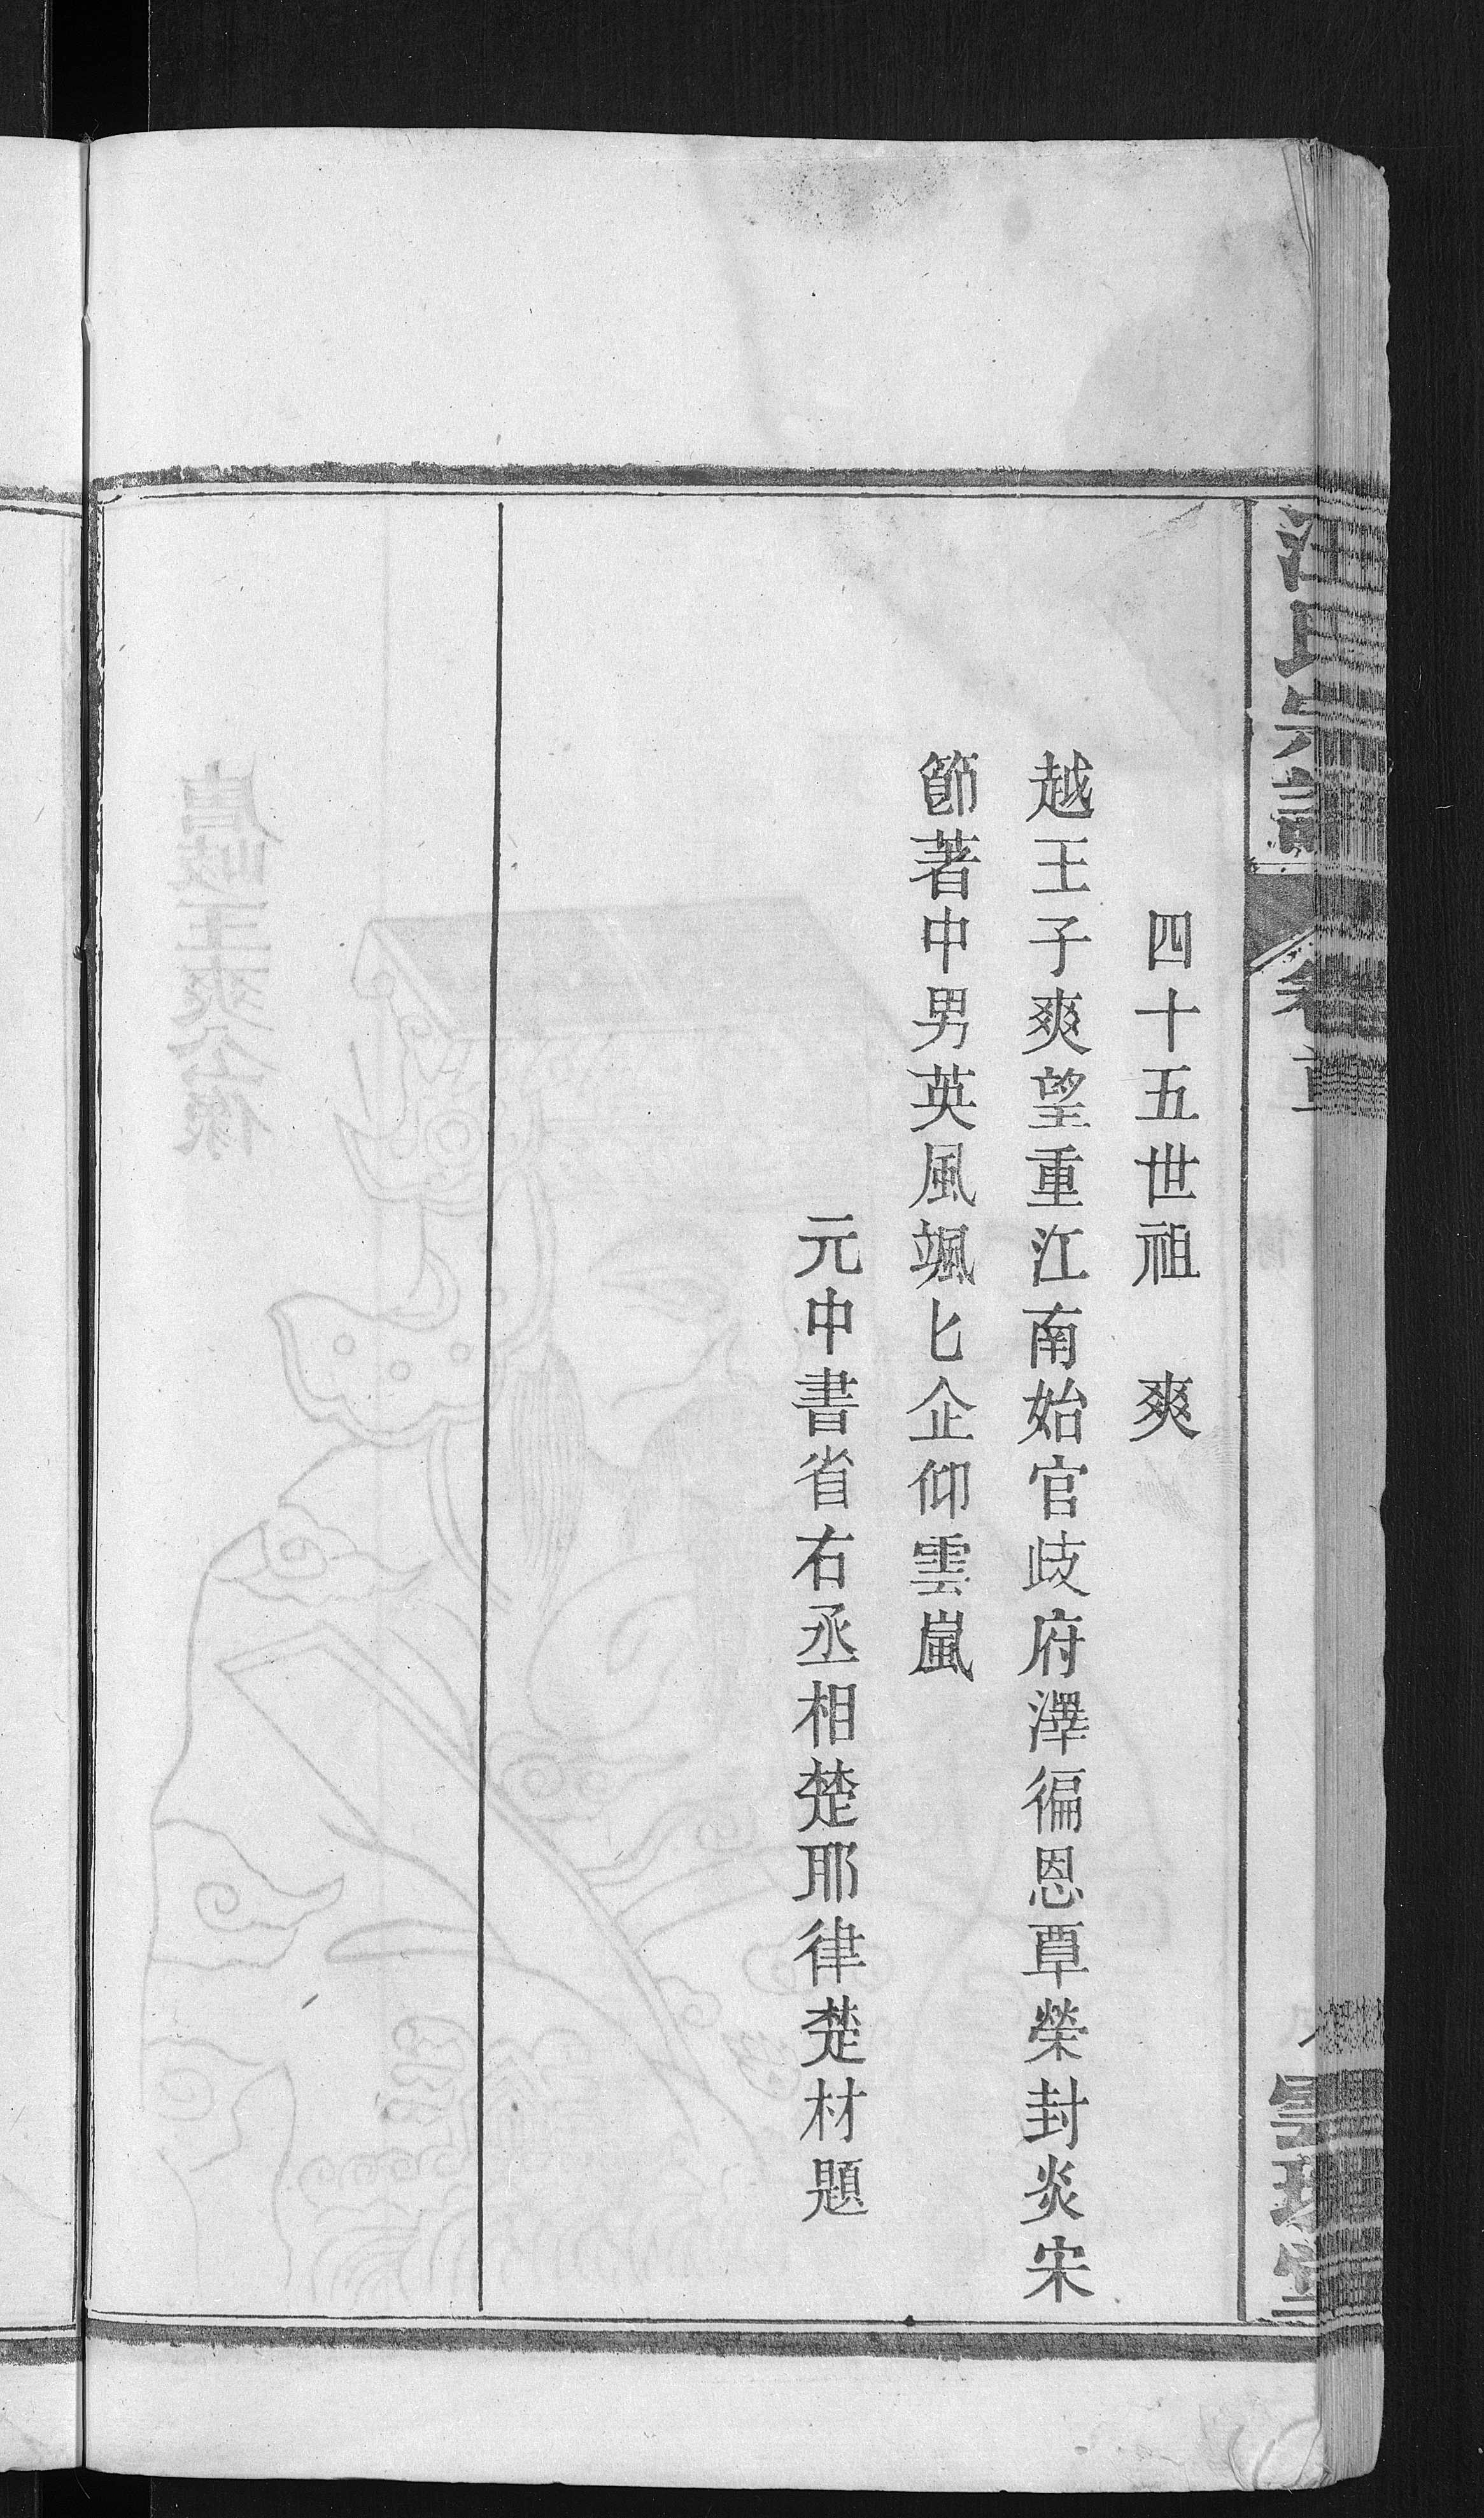 四十五世祖　爽
越王子爽望重江南始官歧府澤徧恩覃榮封炎宋
節著中男英風颯匕企仰雲嵐
元中書省右丞相楚耶律楚材題
汪氏宗譜